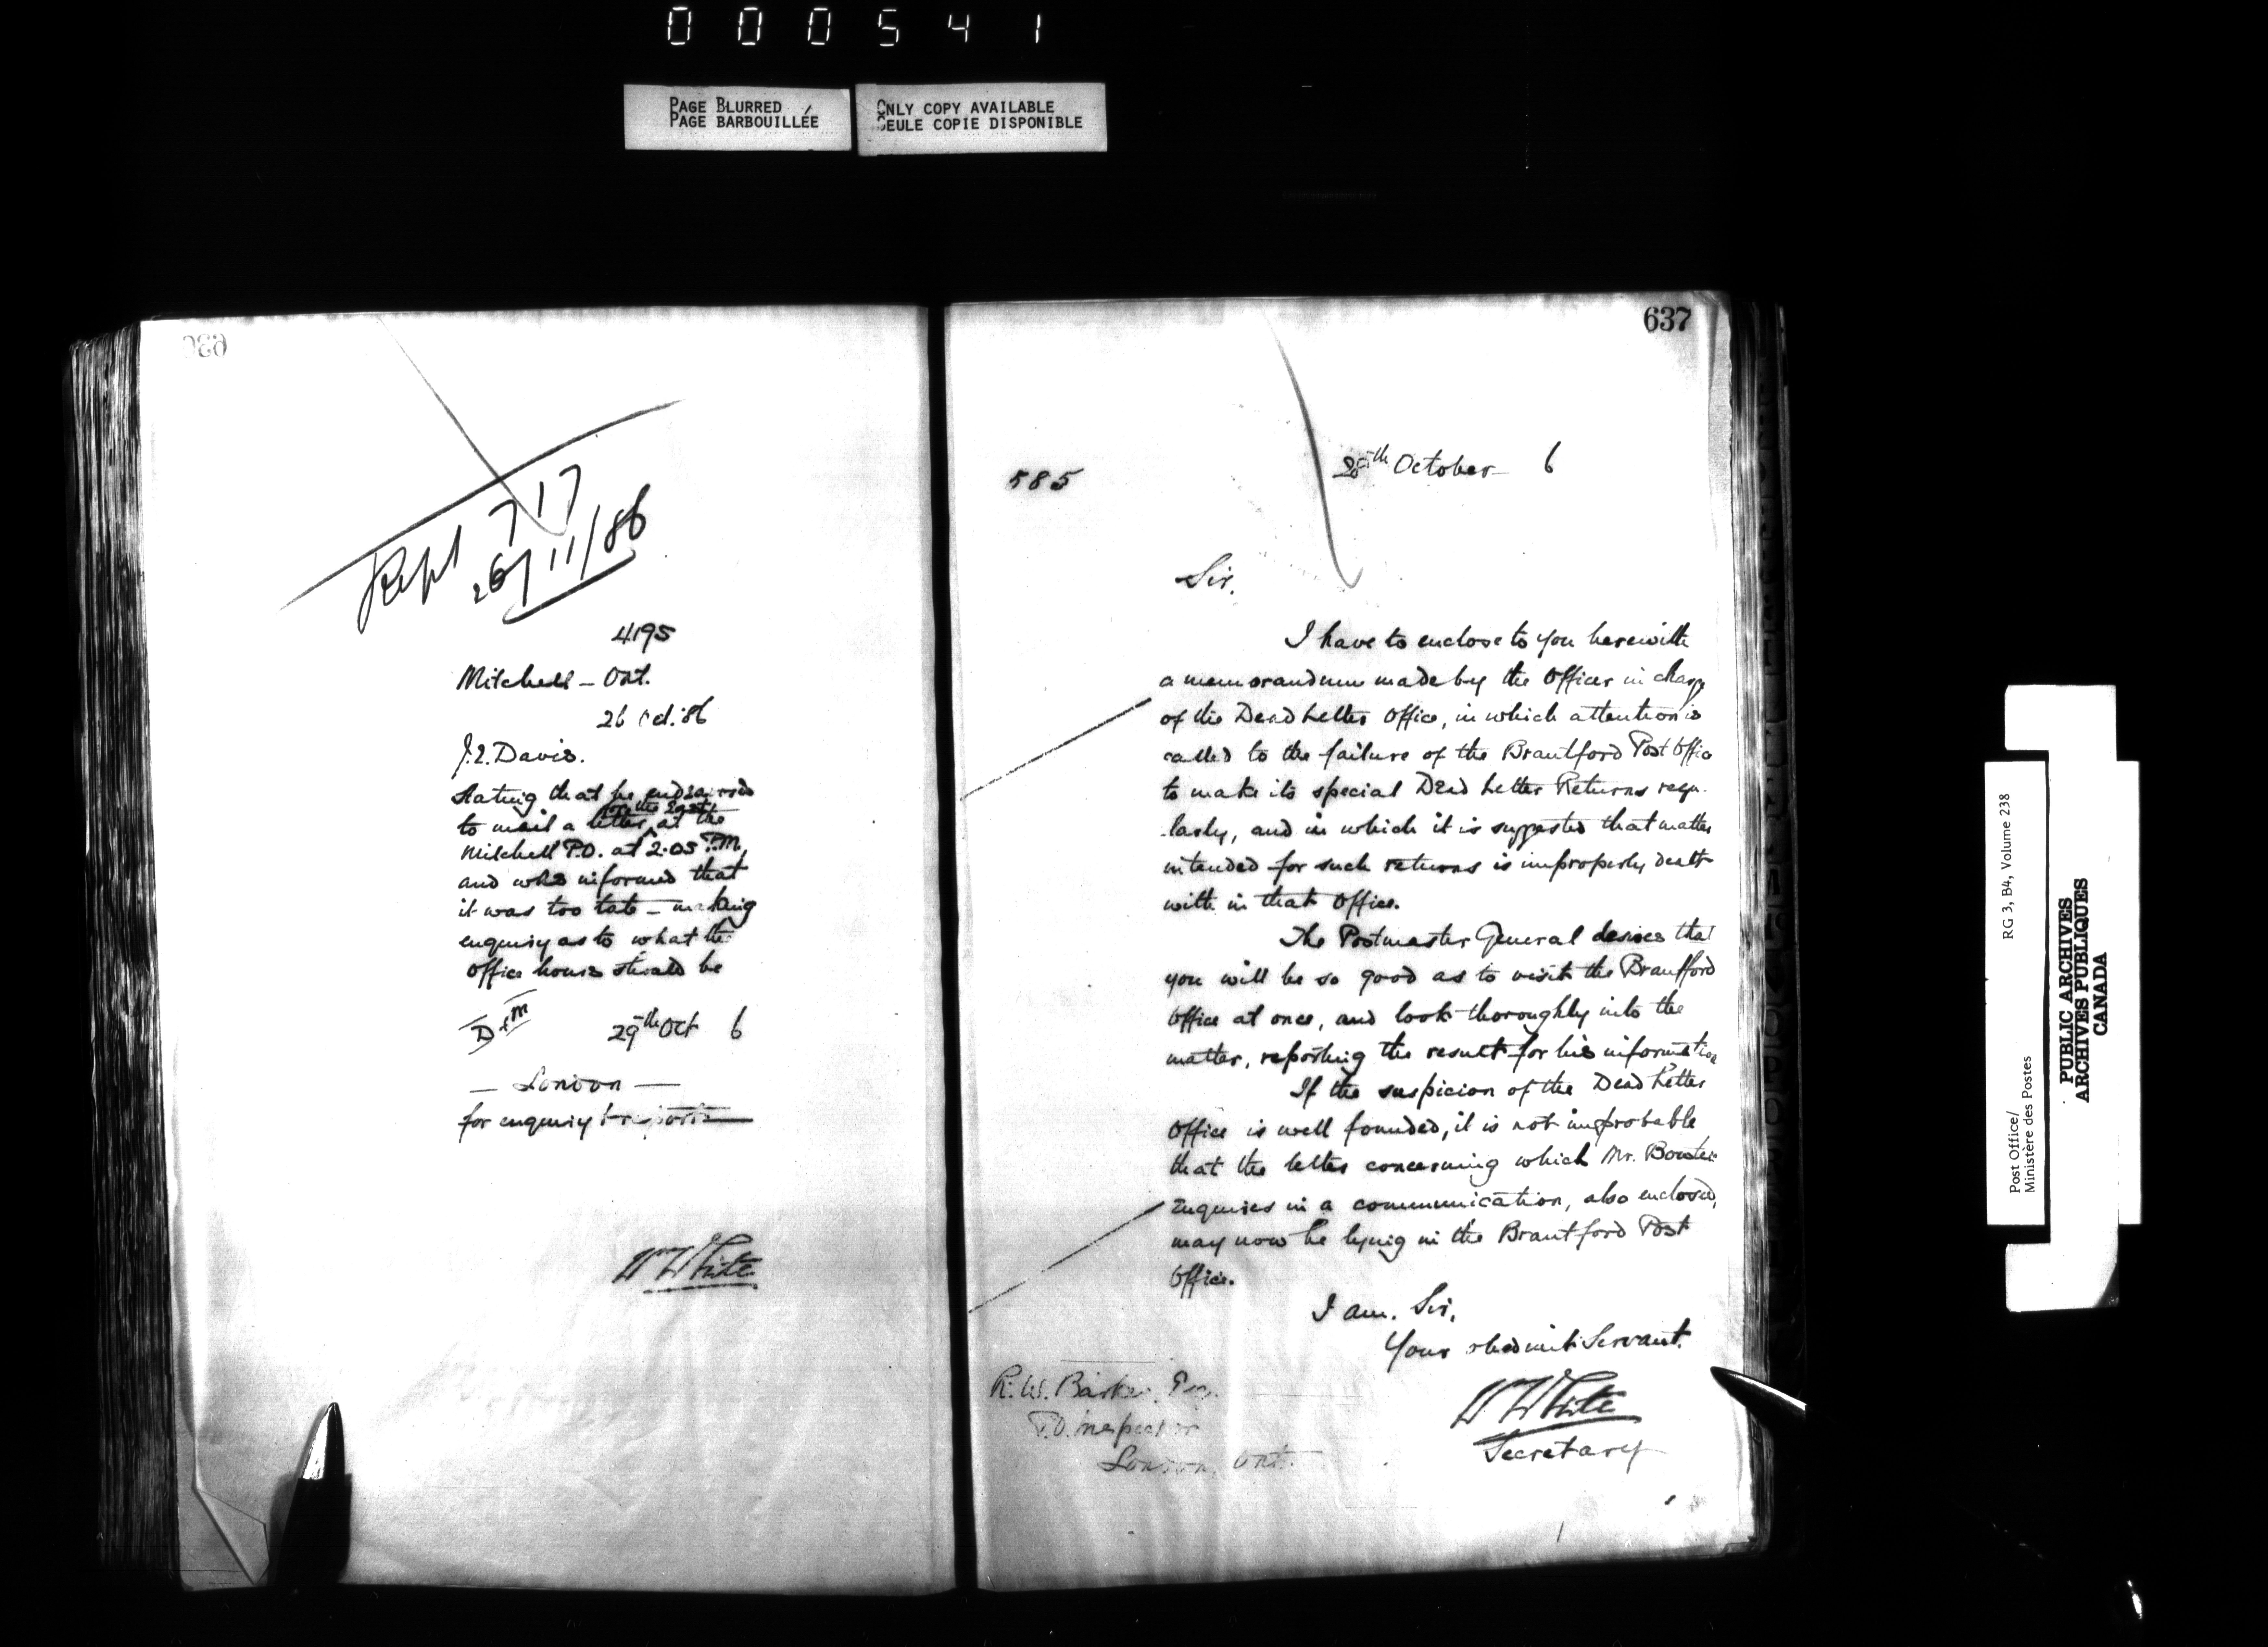 000541
PAGE BLURRED
PAGE BARBOUILLÉE
ONLY COPY AVAILABLE
SEULE COPIE DISPONIBLE
636
Rept 717
26/11/86
4195
Mitchell — Ont.
26 Oct. '86
J.E. Davis.
Stating that he endeavored
for the East
to mail a letter at the
Mitchell P.O. at 2.05 P.M.,
and was informed that
it was too late — making
enquiry as to what the
Office hours should be
29th Oct 6
— London —
for enquiry & report
W White
637
585
October 6
Sir,
I have to enclose to you herewith
a memorandum made by the Officer in charge
of the Dead Letter Office, in which attention is
called to the failure of the Brantford Post Office
to make its special Dead Letter Returns regu-
-larly, and in which it is suggested that matter
intended for such returns is improperly dealt
with in that Office.
The Postmaster General desires that
you will be so good as to visit the Brantford
Office at once, and look thoroughly into the
matter, reporting the result for his information
If the suspicion of the Dead Letter
Office is well founded, it is not improbable
that the letter concerning which Mr.
Enquires in a communication, also enclosed,
may now be lying in the Brantford Post
Office.
I am, Sir,
Your obedient Servant.
W White
Secretary
R. W. Barker, Esq.
P.O. Inspector
London, Ont.
Post Office/
Ministère des Postes
RG 3, B4, Volume 238
PUBLIC ARCHIVES
ARCHIVES PUBLIQUES
CANADA